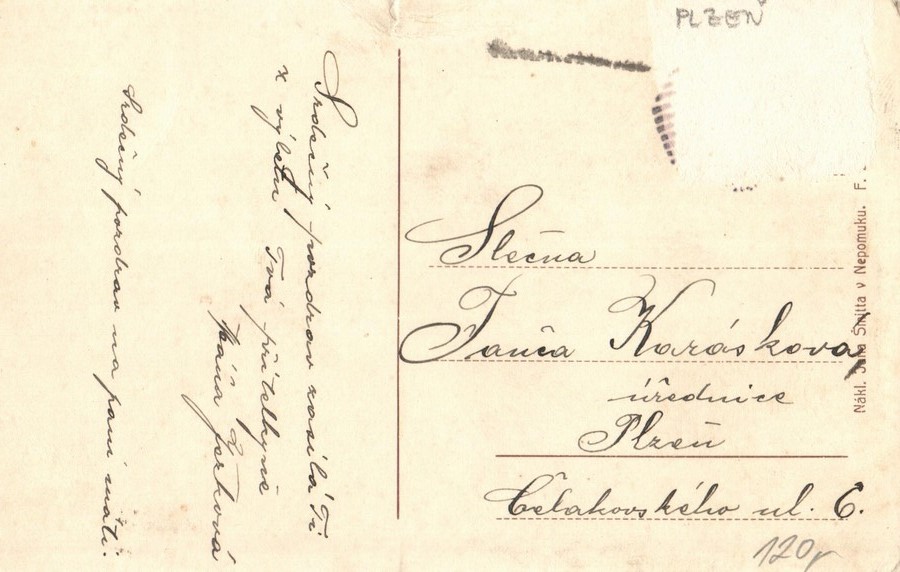 Srdečný pozdrav zasílá Ti
z výletu Tvá přítelkyně
Máňa
Srdečný pozdrav na paní máti.
PLZEŇ
Slečna
Tanča Karáskova
úřednice
Plzeň
Čelakovského ul. 6.
Nákl. Jana Šmitta v Nepomuku. F.
120,-